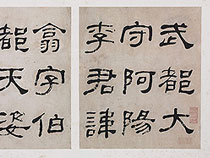 武都大
守阿陽
李君諱
翕字伯
都天姿